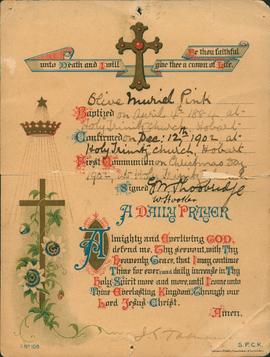 Be thou faithful
unto Death and I will give thee a crown of Life.
Olive Muriel Pink
Baptized on April 4th 1884 at
Holy Trinity Church, Hobart
Confirmed on Dec: 12th 1902 at
Holy Trinity Church, Hobart
First Communion on Christmas Day
1902 at Holy Trinity
Signed
A DAILY PRAYER
Almighty and Everliving GOD,
defend me, Thy servant, with Thy
Heavenly Grace, that I may continue
Thine for ever: and daily increase in Thy
Holy Spirit more and more, until I come unto
Thine Everlasting Kingdom: Through our
Lord Jesus Christ.
Amen.
S.P.C.K.